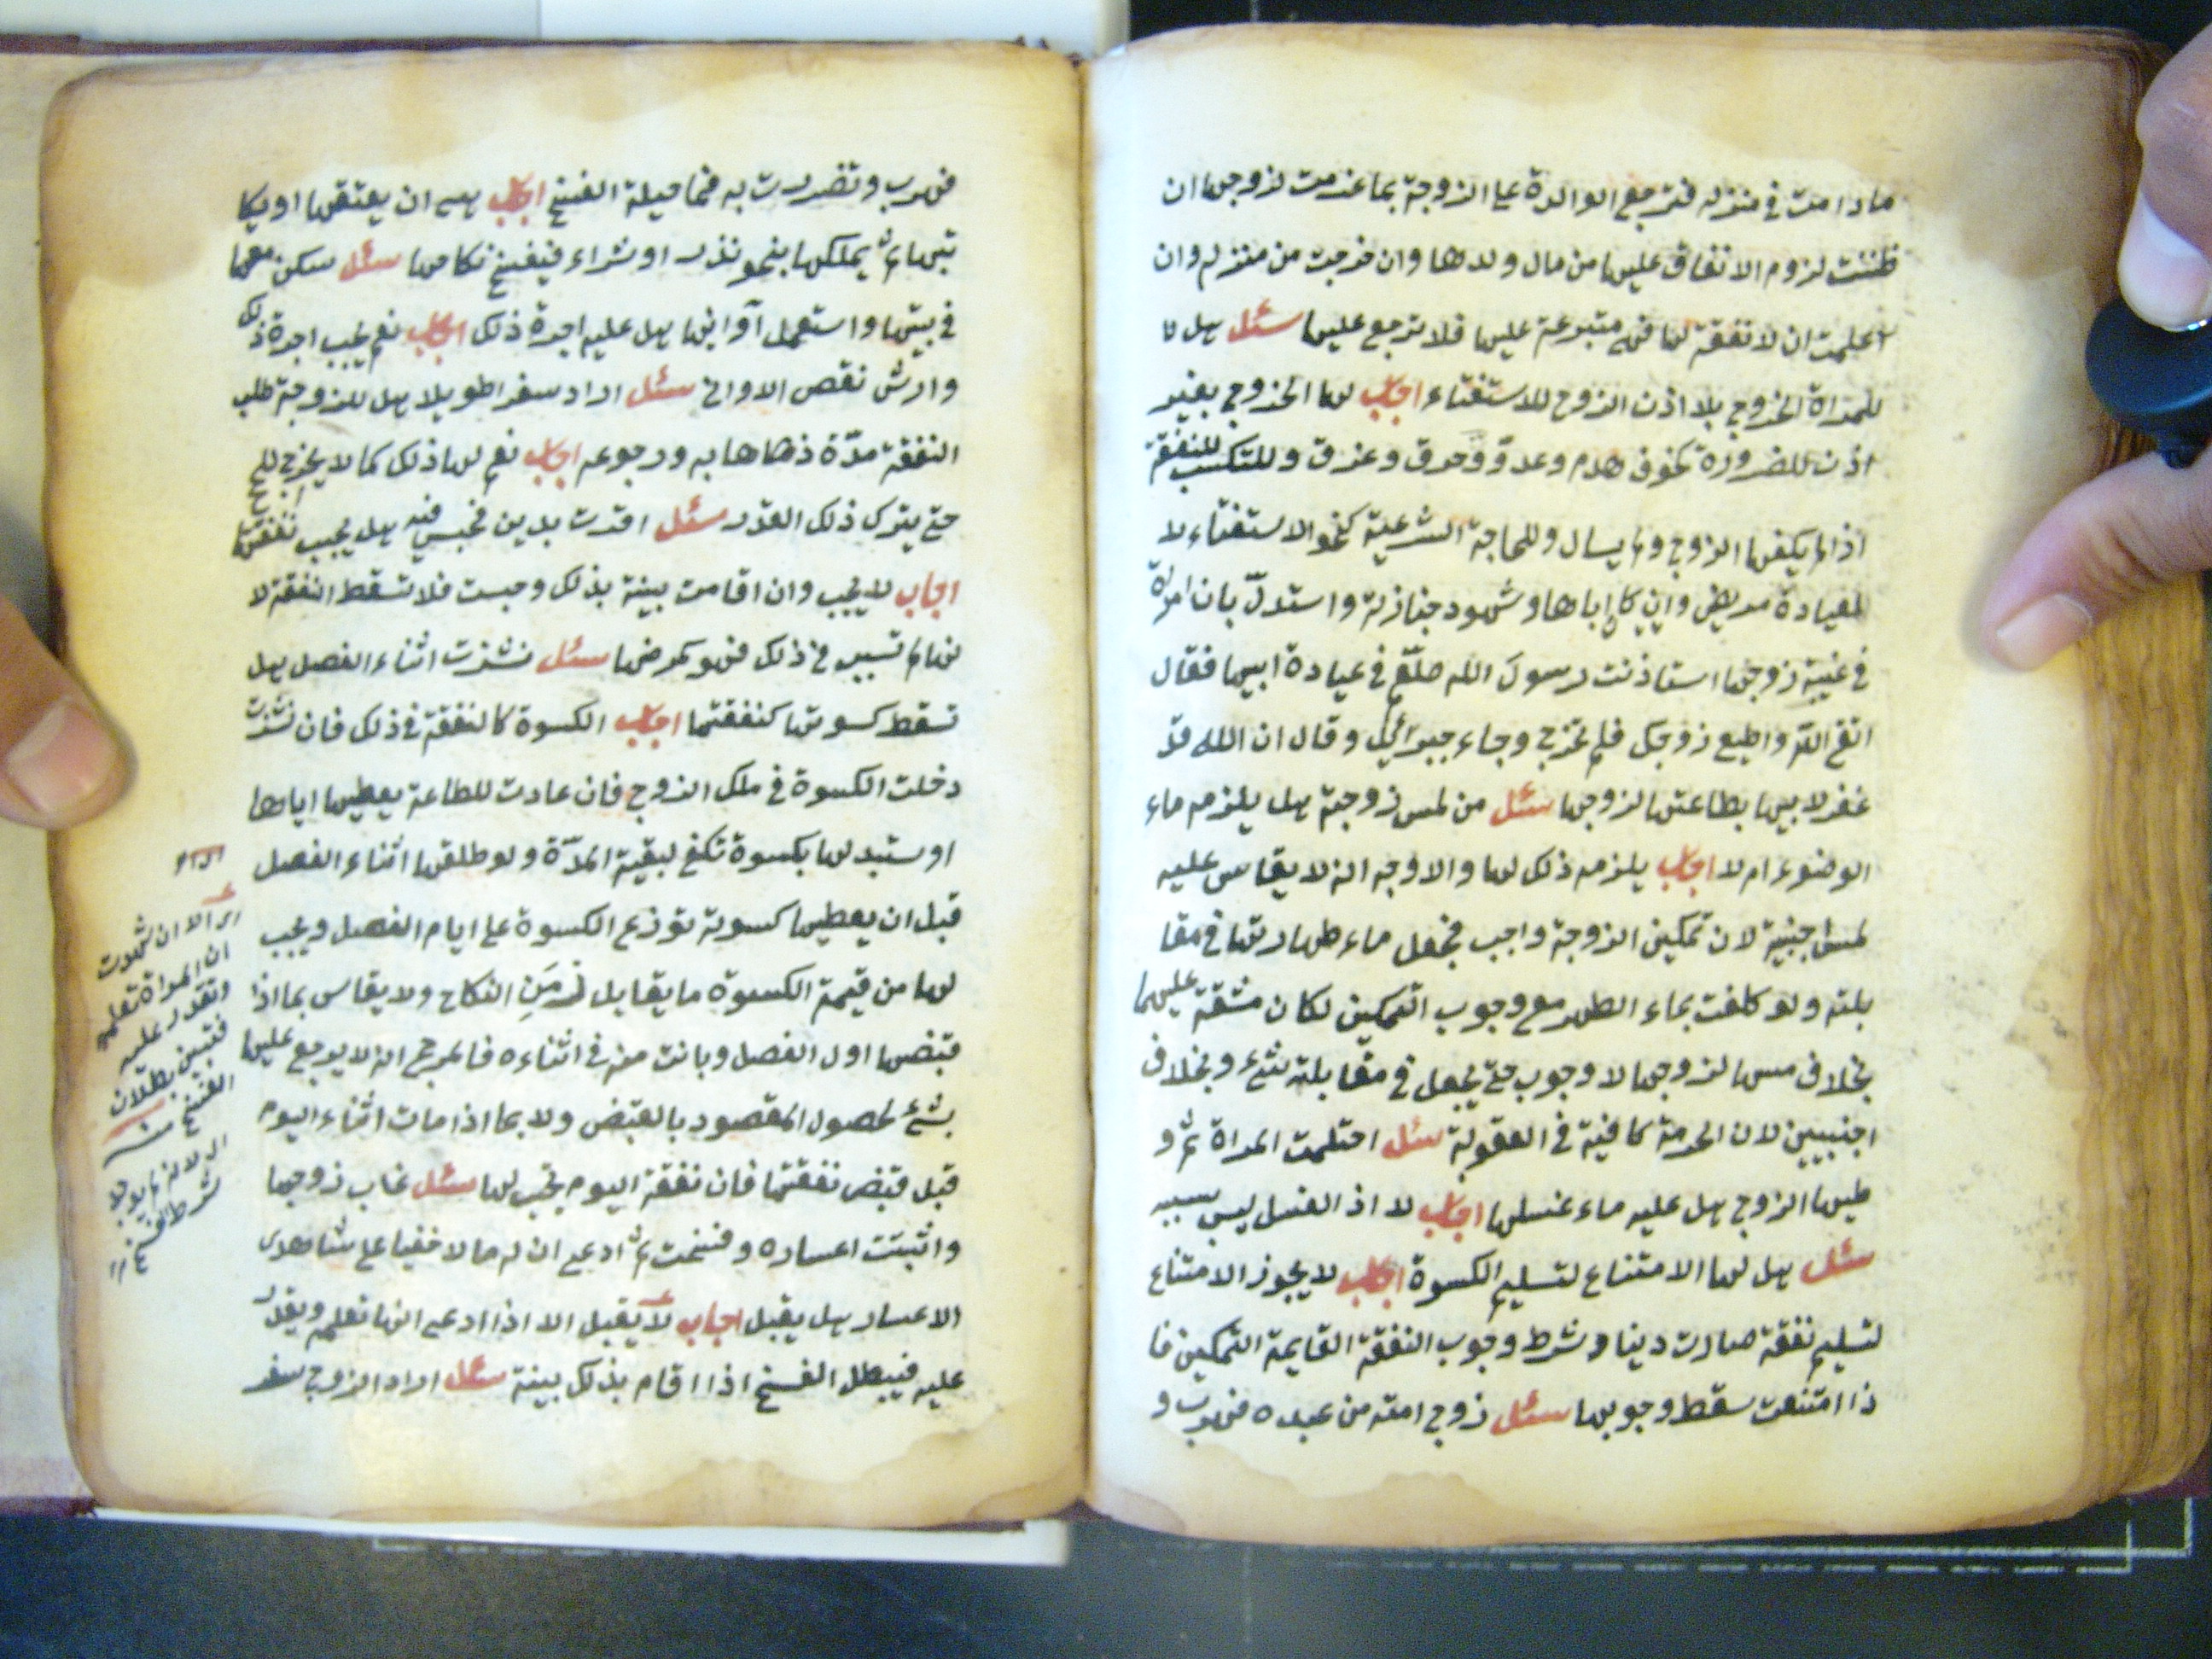 ما دامت في منزله فترجع الوالدة على الزوجة بما غرمت لزوجها ان
ظننت لزوم الانفاق عليها من مال ولدها وان خرجت من منزله وان
علمت ان لا نفقة لها فهي متبرعة عليها فلا ترجع عليها سئل هل
للمراة الخروج بلا اذن الزوج للاستفتاء اجاب لها الخروج بغير
اذن للضرورة كخوف هدم وعدو وحرق وغرق وللتكسب للنفقة
اذا لم يكفها الزوج ولم يسال وللحاجة الشرعية كنحو الاستفتاء لا
لعيادة مريض وان كان اباها وشهود جنازته واستدل بان امراة
في غيبة زوجها استاذنت رسول الله صلعم في عيادة ابيها فقال
اتق الله واطيع زوجك فلم تخرج وجاء جبرائيل وقال ان الله قد
غفر لابيها بطاعتها لزوجها سئل من لمس زوجته هل يلزمه ماء
الوضوء ام لا اجاب يلزمه ذلك لها والاوجه انه لا يقاس عليه
لمس اجنبية لان تمكين الزوجة واجب فجعل ماء طهارتها في مقا
بلته ولو كلفت بماء الطهر مع وجوب التمكين لكان مشقة عليها
بخلاف مسها لزوجها لا وجوب حتى يجعل في مقابلته شيء وبخلاف
اجنبيين لان الحرمة كافية في العقوبة سئل احتلمت المراة ثم و
طيها الزوج هل عليه ماء غسلها اجاب لا اذ الغسل ليس بسببه
سئل هل لها الامتناع لتسليم الكسوة اجاب لا يجوز الامتناع
لتسليم نفقة صارت دينا وشرط وجوب النفقة القايمة التمكين فا
ذا امتنعت سقط وجوبها سئل زوج امته من عبده فهرب و
فهرب وتضررت به فما حيلة الفسخ اجاب هي ان يعتقها او يكا
تبها ثم يملكها بنحو نذر او شراء فيفسخ نكاحها سئل سكن معها
في بيتها واستعمل اوانيها هل عليه اجرة ذلك اجاب نعم يجب اجرة ذلك
وارش نقص الاواني سئل اراد سفرا طويلا هل للزوجة طلب
النفقة مدة ذهابه ورجوعه اجاب نعم لها ذلك كما لا يخرج للحج
حتى يترك ذلك القدر سئل اقرت بدين فحبس فيه هل يجب نفقتها
اجاب لا يجب وان اقامت بينة بذلك وحبست فلا تسقط النفقة لا
نها لم تسبب في ذلك فهو كمرضها سئل نشزت اثناء الفصل هل
تسقط كسوتها كنفقتها اجاب الكسوة كالنفقة في ذلك فان نشزت
دخلت الكسوة في ملك الزوج فان عادت للطاعة يعطيها اياها
او ستبدلها بكسوة تكفي لبقية المدة ولو طلقها اثناء الفصل
قبل ان يعطيها كسوته توزع الكسوة على ايام الفصل ويجب
لها من قيمة الكسوة ما يقابل زمن النكاح ولا يقاس بما اذا
قبضها اول الفصل وبانت منه في اثناءه فالمرجح انه لا يرجع عليها
بشيء لحصول المقصود بالقبض ولا بما اذا مات اثناء اليوم
قبل قبض نفقتها فان نفقة اليوم تجب لها سئل غاب زوجها
واثبتت اعساره وفسخت ثم ادعى ان له مالا خفيا على شاهدى
الاعسار هل يقبل اجاب لا يقبل الا اذا ادعى انها تعلم ويقدر
عليه فيبطل الفسخ اذا اقام بذلك بينة سئل اراد الزوج سفر
الا ان شهدت
ان المراة تعلمه
وتقدر عليه
فتبين بطلان
الفسخ منه
لانه لم يوجد
شرط الفسخ